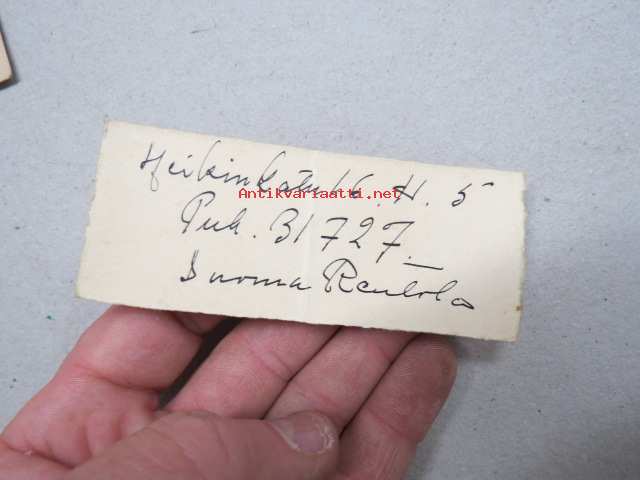 Heikinkatu 16. H. 5
Antikvariaatti.net
Puh. 31727.
Suoma Rautola